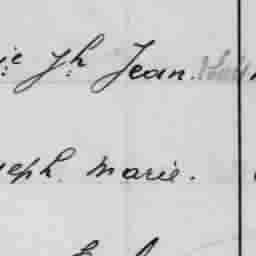 ie Jh Jean.
seph. Marie.